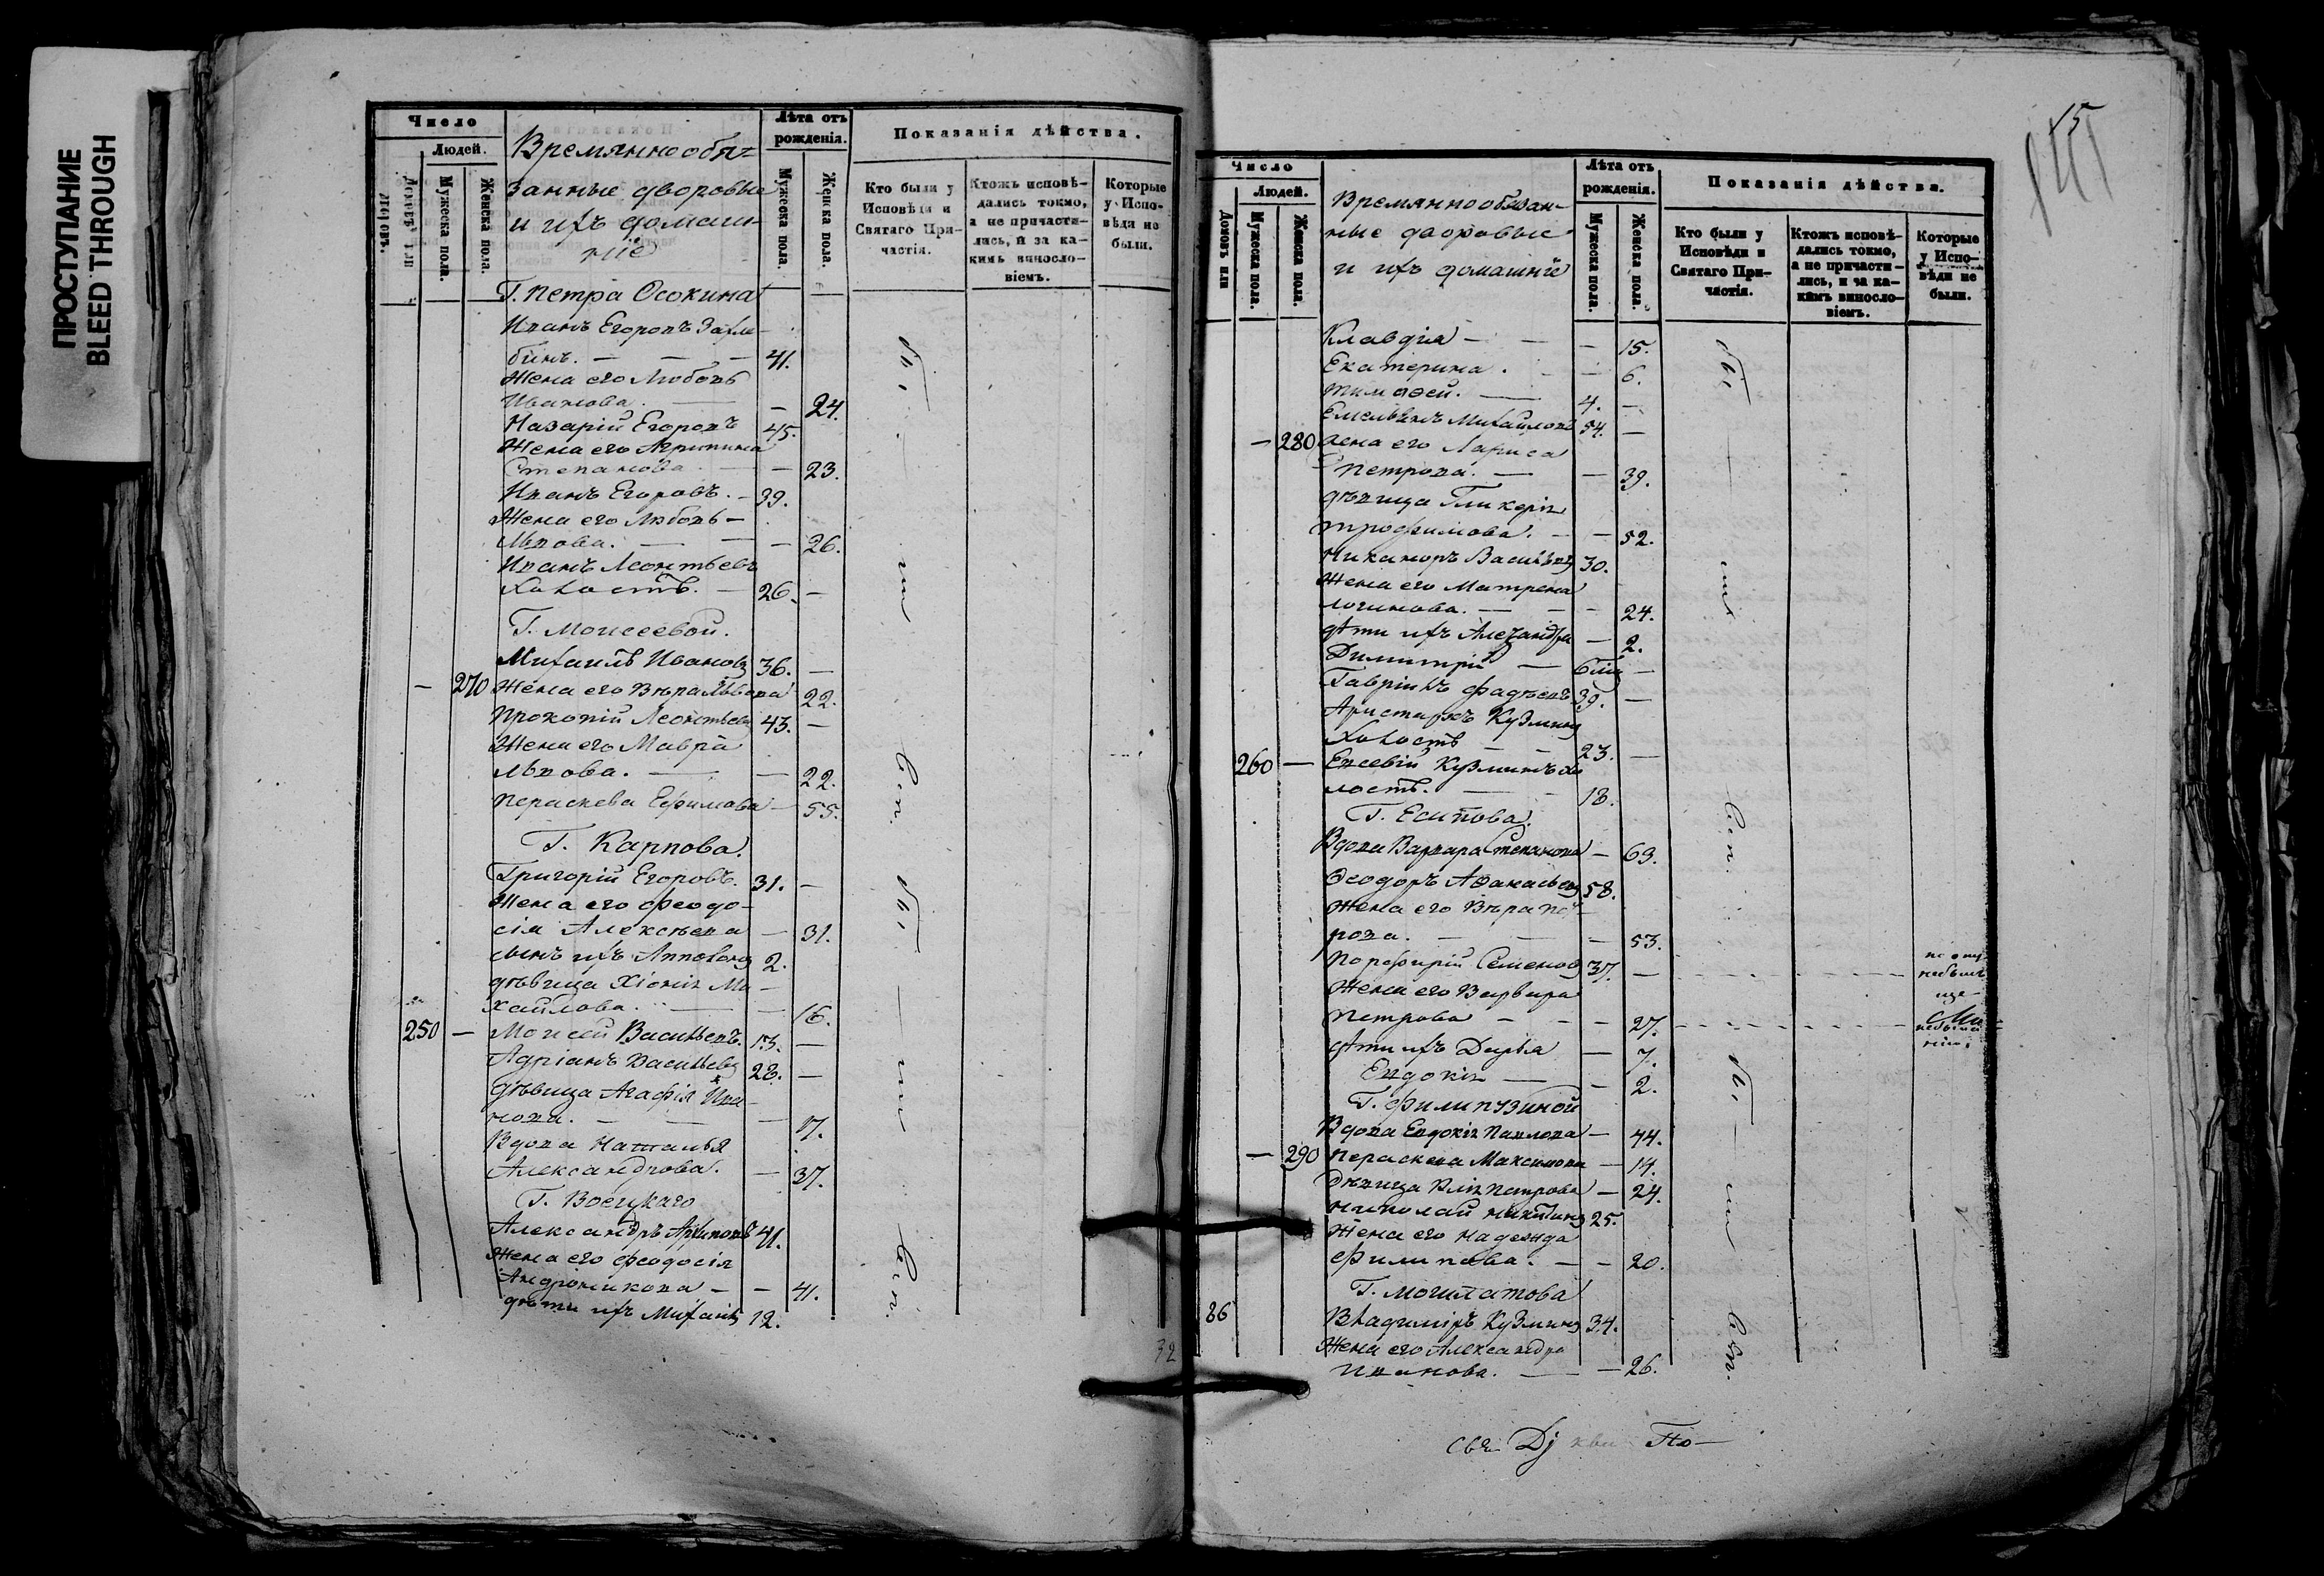 ПРОСТУПАНИЕ
BLEED THROUGH
Число
Людей.
Мужеска пола.
Женска пола.
Времяннообя=
занные дворовые
и ихъ домаш-
ніе
Лѣта отъ
рожденія.
Мужеска пола.
Женска пола.
Показанія дѣйства.
Кто были у
Исповѣди и
Святаго При-
частія.
Ктожъ исповѣ-
дались токмо,
а не причасти-
лись, и за ка-
кимъ винос​ло-
віемъ.
Которые
у Испо-
вѣди не
были.
Г. Петра Осокина
Иванъ Егоровъ
бинъ. — — — 41.
Жена его Любовь
Иванова. — — 24.
Назарій Егоровъ 45.
Жена его Агрипина
Степанова — — 23.
Иванъ Егоровъ. — 39.
Жена его Любовь —
Львова. — — — 26.
Иванъ Леонтьевъ
Холостъ. — 26. —
Г. Моисеевой.
Михаилъ Ивановъ 36. —
— 270 Жена его Вѣра Львова 22.
Прокопій Леонтьевъ 43. —
Жена его Мавра
Львова. — — 22.
Пераскева Ефимова — 55.
Г. Карпова.
Григорій Егоровъ. 31. —
Жена его Феодо-
сія Алексѣева — 31.
сынъ ихъ Апполонъ 2.
дѣвица Хіонія Ми-
хайлова. — — 16.
250 — Моисей Васильевъ. 13. —
Адріанъ Васильевъ 28. —
Дѣвица Агафія Ива-
нова. — — — 17.
Вдова Наталья
Александрова. — 37.
Г. Воецкаго
Александръ Архиповъ 41.
Жена его Феодосія
Андроникова — — 41.
дѣти ихъ Михаилъ 12.
бы — ли — всп.
бы — ли — всп.
32
15
Число
Людей.
Домовъ или
Мужеска пола.
Женска пола.
Времяннообязан-
ные дворовые
и ихъ домашніе
Лѣта отъ
рожденія.
Мужеска пола.
Женска пола.
Показанія дѣйства.
Кто были у
Исповѣди и
Святаго При-
частія.
Ктожъ исповѣ-
дались токмо,
а не причасти-
лись, и за ка-
кимъ винос​ло-
віемъ.
Которые
у Испо-
вѣди не
были.
Клавдія — — — 15.
Екатерина. — — 6.
Тимофей. — 4. —
Емельянъ Михайловъ 54. —
— 280 жена его Лариса
Петрова. — — 39.
дѣвица Гликерія
Трофимова. — — 52.
Никаноръ Васильевъ 30.
Жена его Матрена
Логинова. — — — 24.
дѣти ихъ Александра — 2.
Димитрій — 6 мѣц —
Гавріилъ Фадѣевъ 39. —
Аристархъ Кузминъ
Холостъ — — 23. —
260 — Евсевій Кузминъ хо
лостъ. — — 18.
Г. Есипова.
Вдова Варвара Степанова — 63.
Феодоръ Афанасьевъ 58.
Жена его Вѣра Пет-
рова. — — — 53.
Порфирій Семеновъ 37. —
Жена его Варвара
Петрова — — — 27.
дѣти ихъ Дарья — 7.
Евдокія — — 2.
Г. Филипузиной
Вдова Евдокія Павлова — 44.
— 290 Пераскева Максимова — 14.
Дѣвица Юлія Петрова — 24.
Николай Никитинъ 25.
Жена его Надежда
Филипова. — — 20.
Г. Могилатова
86 Владиміръ Кузминъ 34.
Жена его Александра
Иванова. — — 26.
бы — ли — всп.
бы — ли — всп.